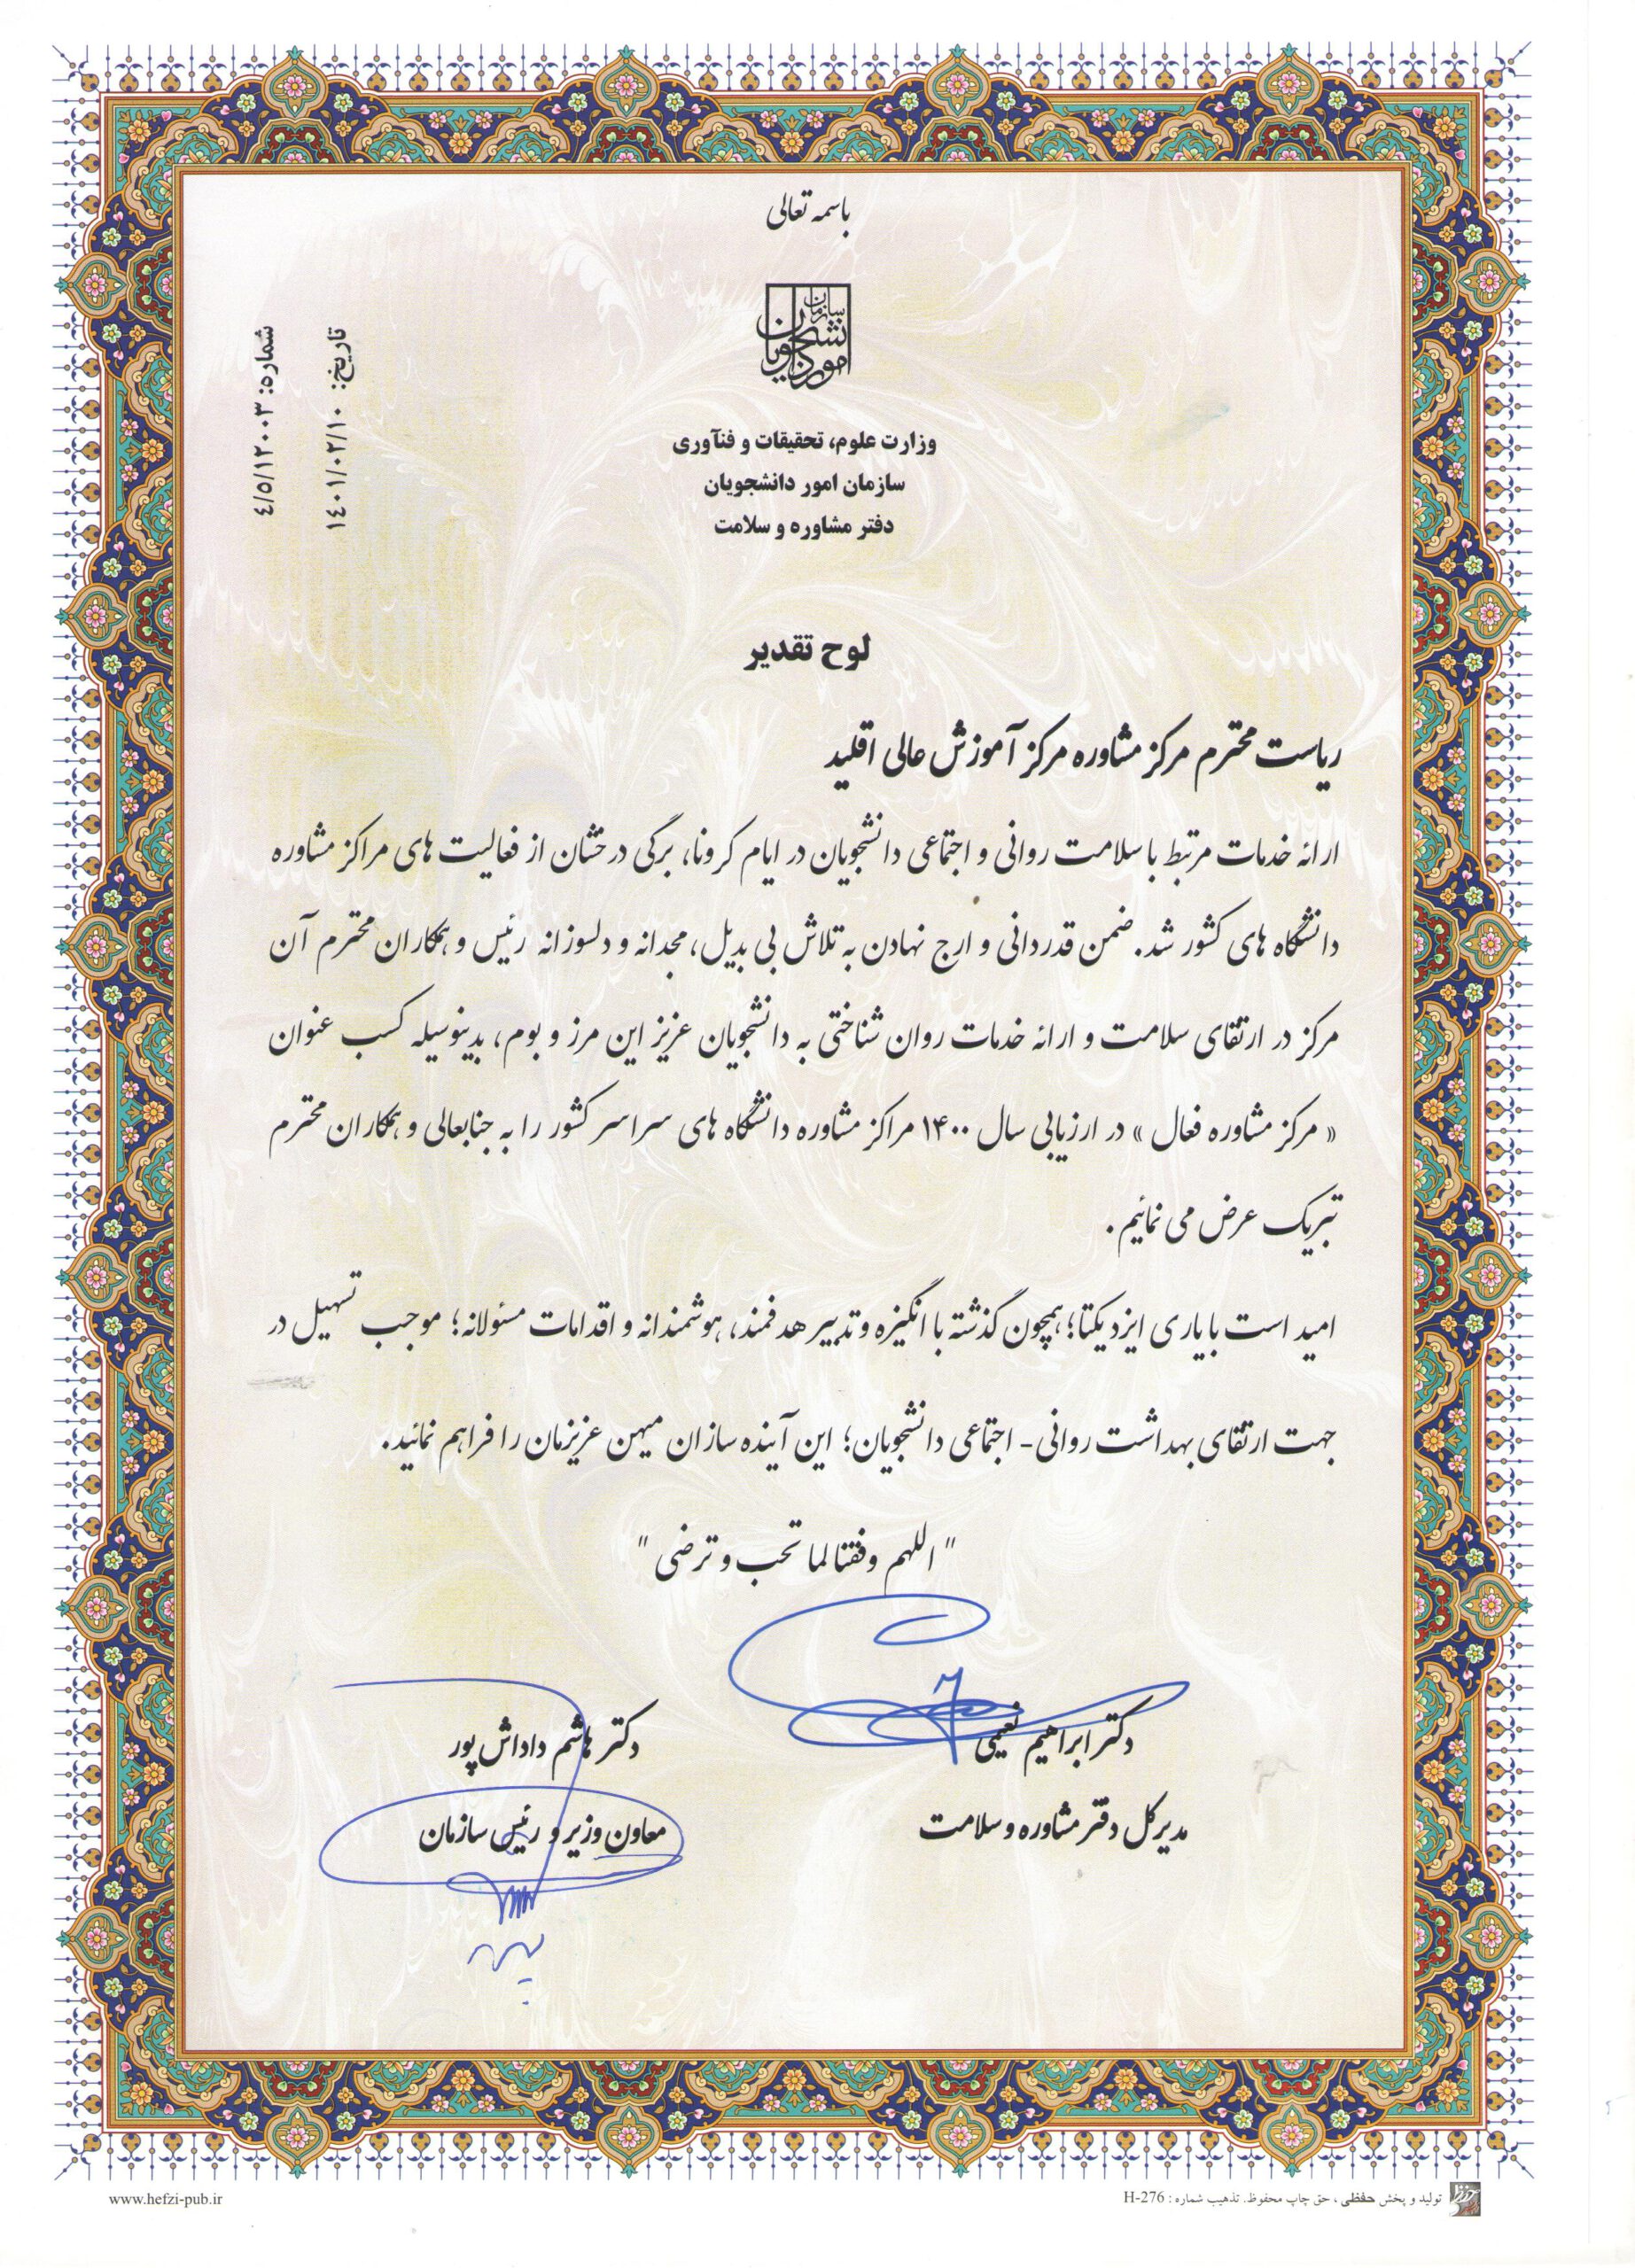 باسمه تعالی
سازمان
امور دانشجویان
وزارت علوم، تحقیقات و فنآوری
سازمان امور دانشجویان
دفتر مشاوره و سلامت
شماره: ٤/٥/١٢٠٠٣
تاریخ: ١٤٠١/٠٢/١٠
لوح تقدیر
ریاست محترم مرکز مشاوره مرکز آموزش عالی اقلید
ارائه خدمات مرتبط با سلامت روانی و اجتماعی دانشجویان در ایام کرونا، برگی درخشان از فعالیت های مراکز مشاوره
دانشگاه های کشور شد. ضمن قدردانی و ارج نهادن به تلاش بی بدیل، مجدانه و دلسوزانه رئیس و همکاران محترم آن
مرکز در ارتقای سلامت و ارائه خدمات روان شناختی به دانشجویان عزیز این مرز و بوم، بدینوسیله کسب عنوان
« مرکز مشاوره فعال » در ارزیابی سال ۱۴۰۰ مراکز مشاوره دانشگاه های سراسر کشور را به جنابعالی و همکاران محترم
تبریک عرض می نمائیم.
امید است با یاری ایزد یکتا؛ همچون گذشته با انگیزه و تدبیر هدفمند، هوشمندانه و اقدامات مسئولانه؛ موجب تسهیل در
جهت ارتقای بهداشت روانی- اجتماعی دانشجویان؛ این آینده سازان میهن عزیزمان را فراهم نمائید.
" اللهم وفقنا لما تحب و ترضی "
دکتر ابراهیم نعیمی
مدیرکل دفتر مشاوره و سلامت
دکتر هاشم داداش پور
معاون وزیر و رئیس سازمان
تولید و پخش حفظی ، حق چاپ محفوظ. تذهیب شماره : H-276
www.hefzi-pub.ir